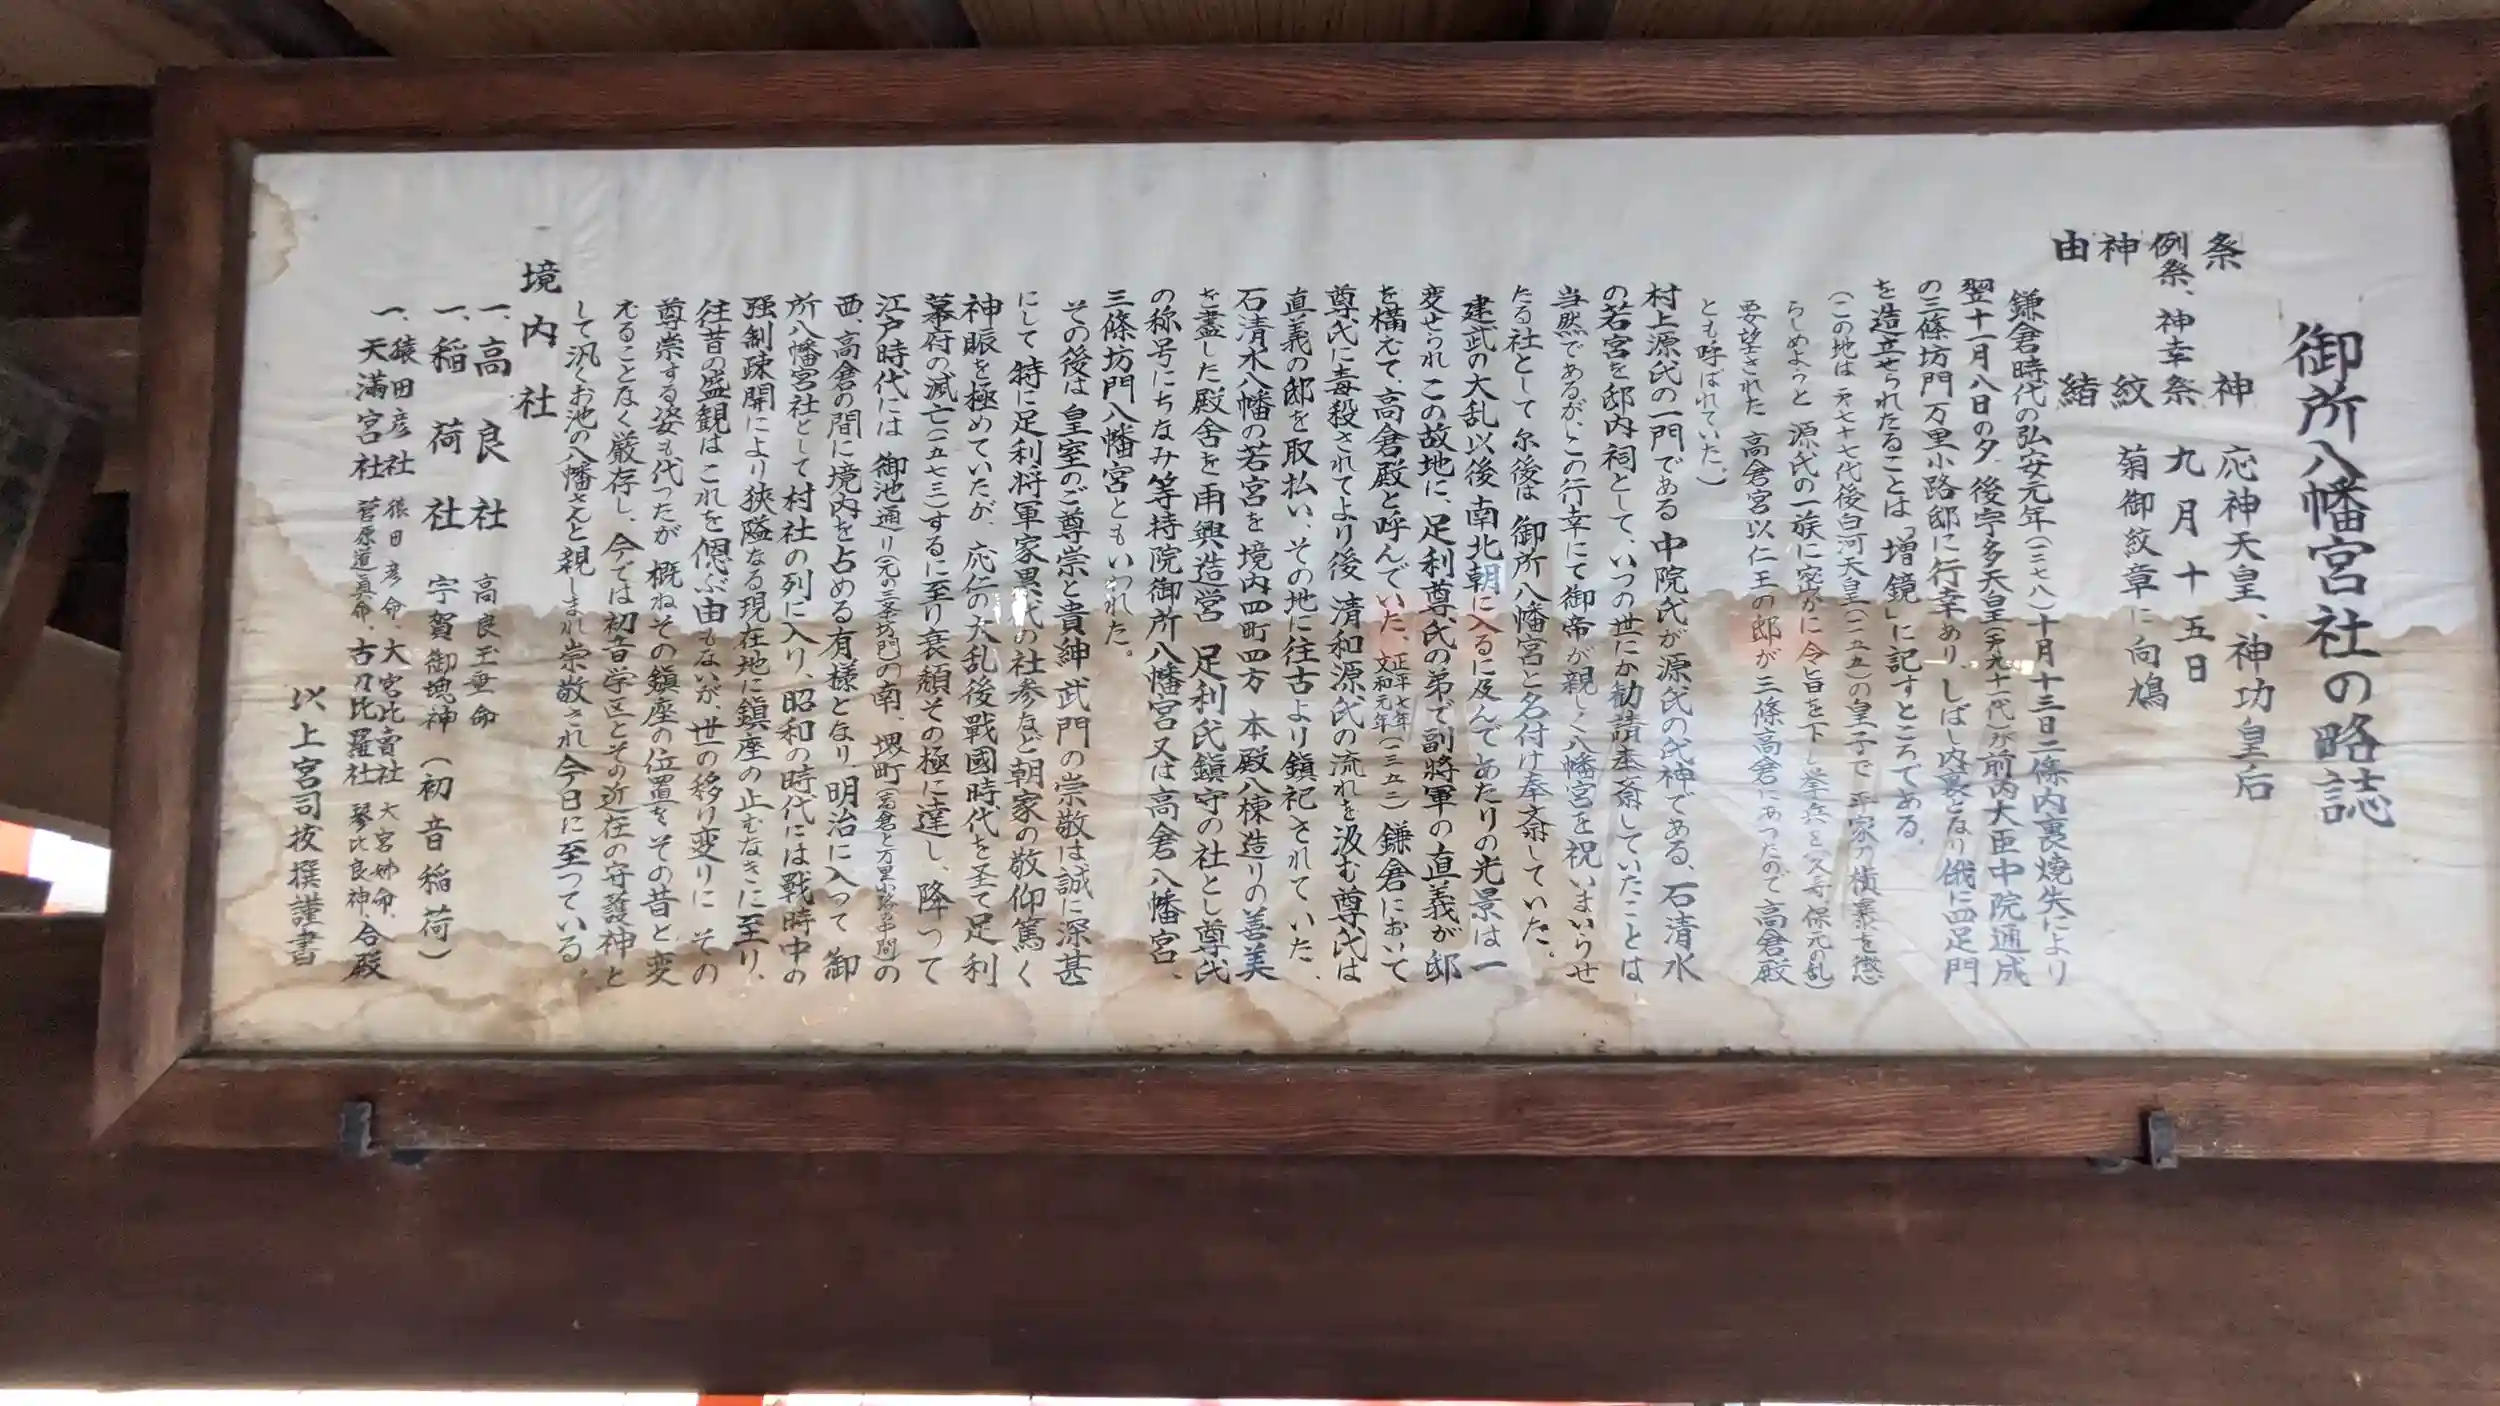 御所八幡宮社の略誌
祭神 応神天皇、神功皇后
例祭、神幸祭 九月十五日
神紋 菊御紋章に向鳩
由緒
鎌倉時代の弘安元年(一二七八)十月十三日二條内裏焼失により
翌十一月八日の夕、後宇多天皇(第九十一代)が前内大臣中院通成
の三條坊門万里小路邸に行幸あり、しばし内裏となり俄に四足門
を造立せられたることは「増鏡」に記すところである。
(この地は第七十七代後白河天皇(一一五五)の皇子で 平家の横暴を懲
らしめようと 源氏の一族に密かに令旨を下し挙兵を(久寿、保元の乱)
要望された 高倉宮以仁王の邸が 三條高倉にあったので高倉殿
とも呼ばれていた。)
村上源氏の一門である中院氏が源氏の氏神である、石清水
の若宮を邸内祠として、いつの世にか勧請奉斎していたことは
当然であるが、この行幸にて御帝が親しく八幡宮を祝いまいらせ
たる社として尓後は 御所八幡宮と名付け奉斎していた。
建武の大乱以後南北朝に入るに及んであたりの光景は一
変せられこの故地に、足利尊氏の弟で副將軍の直義が邸
を構えて、高倉殿と呼んでいた、正平七年文和元年(一三五二)鎌倉において
尊氏に毒殺されてより後 清和源氏の流れを汲む尊氏は
直義の邸を取払い、その地に往古より鎮祀されていた、
石清水八幡の若宮を境内四町四方 本殿八棟造りの善美
を盡した殿舎を再興造営 足利氏鎮守の社とし尊氏
の称号にちなみ等持院御所八幡宮又は高倉八幡宮、
三條坊門八幡宮ともいわれた。
その後は皇室のご尊崇と貴紳 武門の崇敬は誠に深甚
にして 特に足利將軍家累代の社参など朝家の敬仰篤く
神賑を極めていたが、応仁の大乱後戰國時代を圣て足利
幕府の滅亡(一五七三)するに至り衰頽その極に達し、降って
江戸時代には 御池通り(元の三条坊門)の南、堺町(高倉と万里小路中間)の
西、高倉の間に境内を占める有様となり、明治に入って 御
所八幡宮社として村社の列に入り、昭和の時代には戦時中の
强制疎開により狭隘なる現在地に鎮座の止むなきに至り、
往昔の盛観はこれを偲ぶ由もないが、世の移り変りに その
尊崇する姿も代ったが 概ねその鎮座の位置も その昔と変
えることなく厳存し、今では初音学区とその近在の守護神と
して汎くお池の八幡さんと親しまれ崇敬され今日に至っている。
境内社
一、高良社 高良玉垂命
一、稲荷社 宇賀御魂神(初音稲荷)
一、猿田彦社 猿田彦命、大宮比賣社 大宮姉命、
天満宮社 菅原道真命、古刀比羅社 琴比良神、合殿
以上宮司拔撰謹書